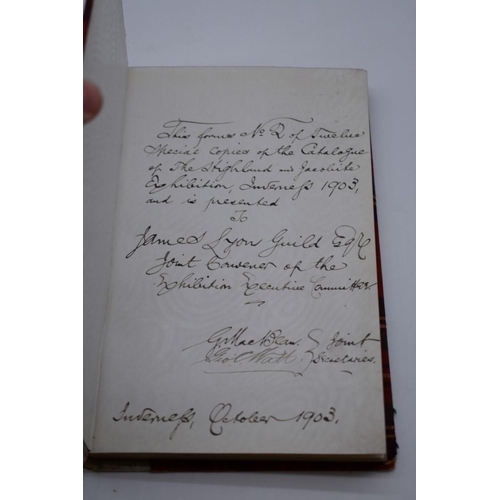 This forms No. 2 of Twelve
Special Copies of the Catalogue
of The Highland and Jacobite
Exhibition, Inverness 1903,
and is presented
To
James Lyon Guild Esqr
Joint Convener of the
Exhibition Executive Committee
G. MacBean
Joint
Geo. C. Watt
Secretaries.
Inverness, October 1903.